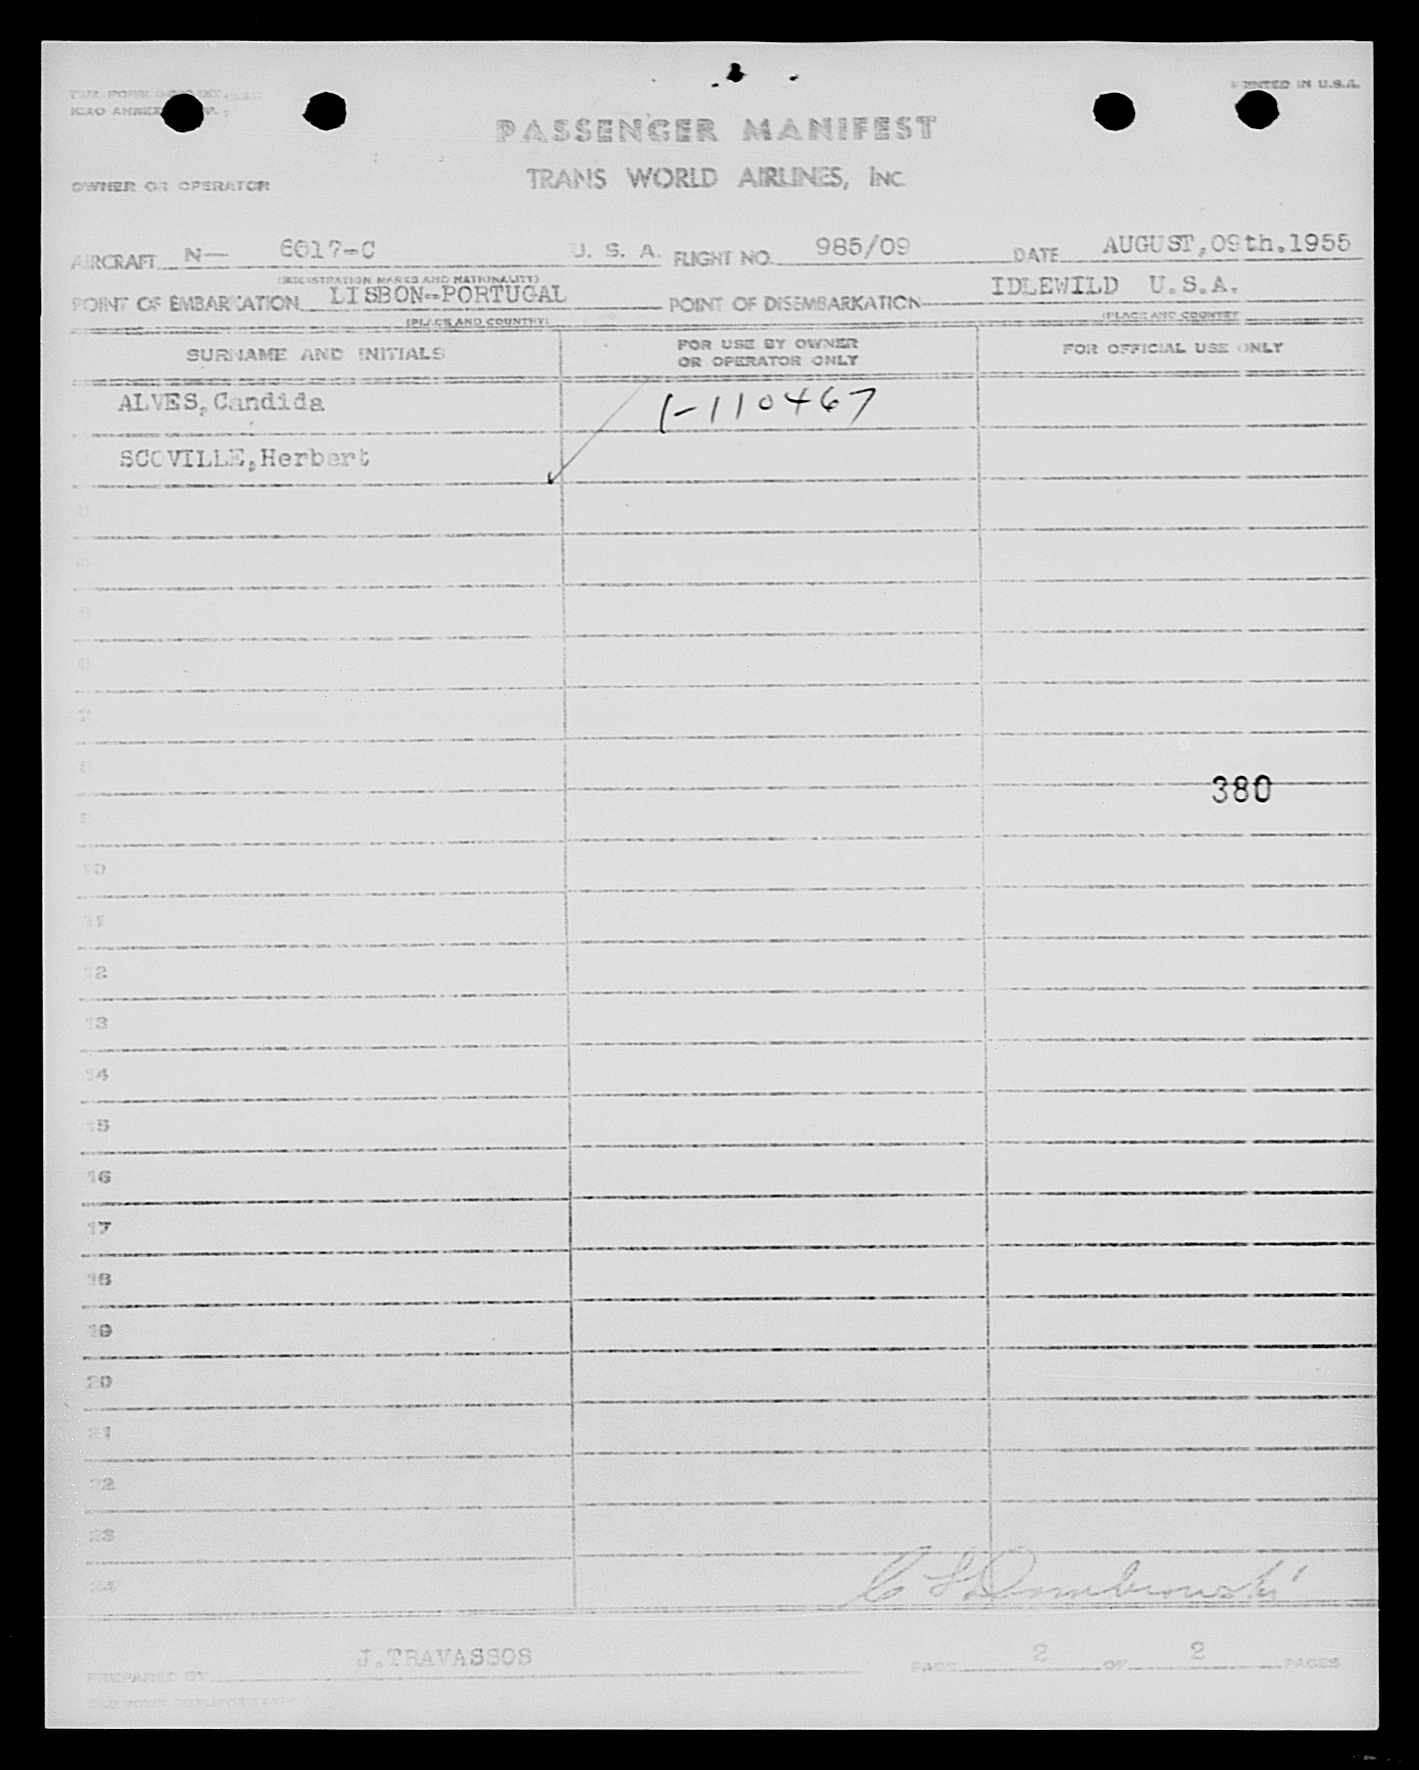 PRINTED IN U.S.A.
PASSENGER MANIFEST
OWNER OR OPERATOR TRANS WORLD AIRLINES, INC.
AIRCRAFT N— 6017-C U. S. A. FLIGHT NO. 985/09 DATE AUGUST,09th.1955
(REGISTRATION MARKS AND NATIONALITY)
POINT OF EMBARKATION LISBON--PORTUGAL POINT OF DISEMBARKATION IDLEWILD U.S.A.
(PLACE AND COUNTRY) (PLACE AND COUNTRY
SURNAME AND INITIALS FOR USE BY OWNER OR OPERATOR ONLY FOR OFFICIAL USE ONLY
ALVES,Candida 1-110467
SCOVILLE,Herbert
7
380
10
11
12
13
14
15
16
17
18
19
20
21
22
23
24
C L Dombrowski
PREPARED BY J.TRAVASSOS PAGE 2 OF 2 PAGES